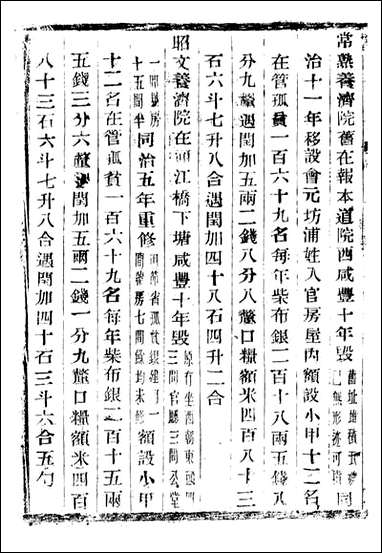 常熟養濟院舊在報本道院西咸豐十年毀舊址地積式樣已無形迹可考同
治十一年移設會元坊浦姓入官房屋內額設小甲十二名
在管孤貧一百六十九名每年柴布銀二百十八兩五錢八
分九釐遇閏加五兩二錢八分八釐口糧額米四百八十三
石六斗七升八合遇閏加四十八石四升二合
昭文養濟院在江橋下塘咸豐十年毀原有坐西朝東頭門三間官廳三間公堂
一間羣房十五間半同治五年重修額設小甲
十二名在管孤貧一百六十九名每年柴布銀二百十五兩
五錢三分六釐遇閏加五兩二錢一分九釐口糧額米四百
八十三石六斗七升八合遇閏加四十石三斗六合五勺